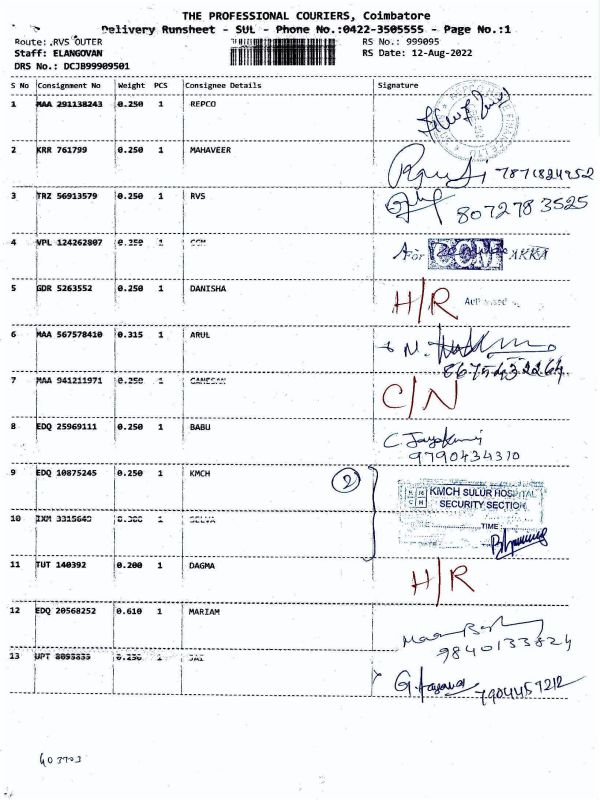 THE PROFESSIONAL COURIERS, Coimbatore
Delivery Runsheet - SUL - Phone No.:0422-3505555 - Page No.:1
Route: RVS OUTER RS No.: 999095
Staff: ELANGOVAN RS Date: 12-Aug-2022
DRS No.: DCJB99909501
S No Consignment No Weight PCS Consignee Details Signature
1 MAA 291138243 0.250 1 REPCO
2 KRR 761799 0.250 1 MAHAVEER
7871824252
3 TRZ 56913579 0.250 1 RVS
8072783525
4 VPL 124262807 0.250 1 CCM
For
5 GDR 5263552 0.250 1 DANISHA H/R
6 MAA 567578410 0.315 1 ARUL
8675432264
7 MAA 941211971 0.250 1 GANESAN C/N
8 EDQ 25969111 0.250 1 BABU
9790434310
9 EDQ 10875245 0.250 1 KMCH 2
KMCH SULUR HOSPITAL
SECURITY SECTION
10 IXM 3315640 0.300 1 SELVA
TIME:
DATE:
11 TUT 140392 0.200 1 DAGMA H/R
12 EDQ 20568252 0.610 1 MARIAM
9840133824
13 UPT 8095835 0.250 1 JAI
7904457212